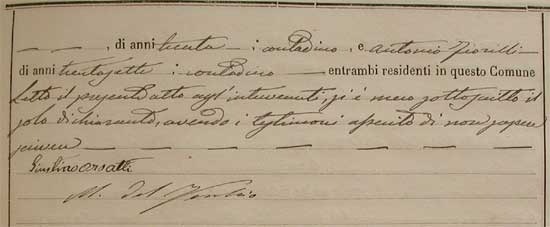 — — , di anni trenta — , contadino , e Antonio Fiorilli
di anni trentasette , contadino — entrambi residenti in questo Comune
Letto il presente atto agl'intervenuti, si è meco sottoscritto il
solo dichiarante, avendo i testimoni asserito di non sapere
scrivere — — — — — — — —
Orsatti
M. del Vecchio